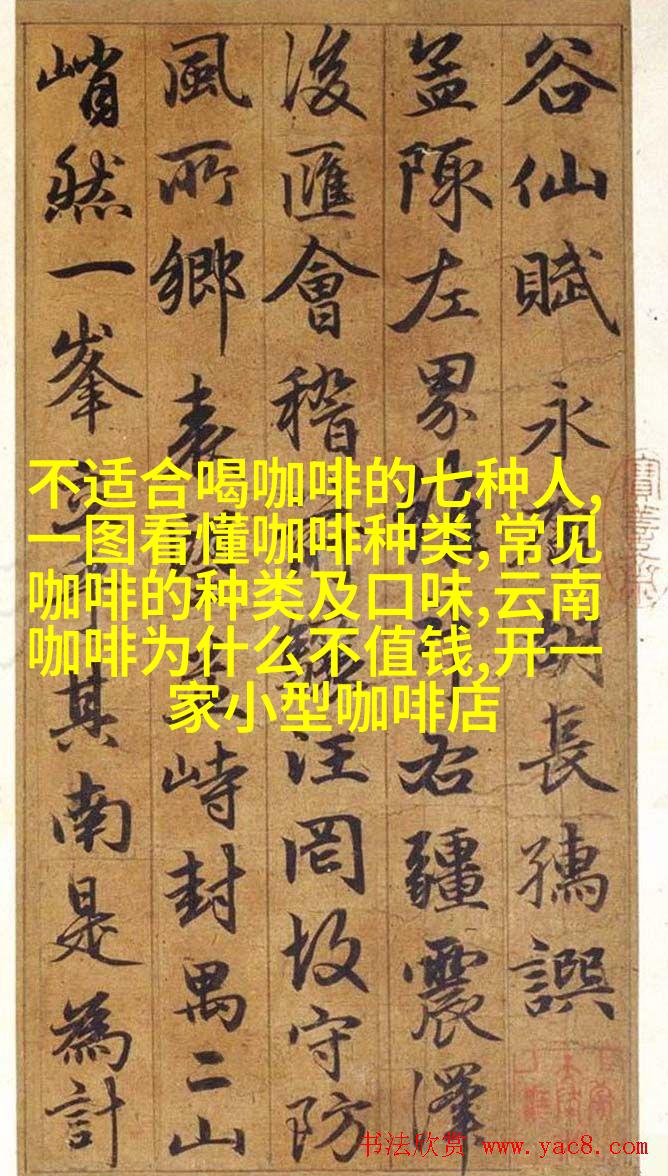 谷仙賦 永康胡長孺譔
陳左界右疆震澤
浚匯會稽汪罔故守防
風所鄉表峙封禺二山
峭然一峯其南是為計
不适合喝咖啡的七种人,
一图看懂咖啡种类,常见
咖啡的种类及口味,云南
咖啡为什么不值钱,开一
家小型咖啡店
书法欣赏 www.yac8.com